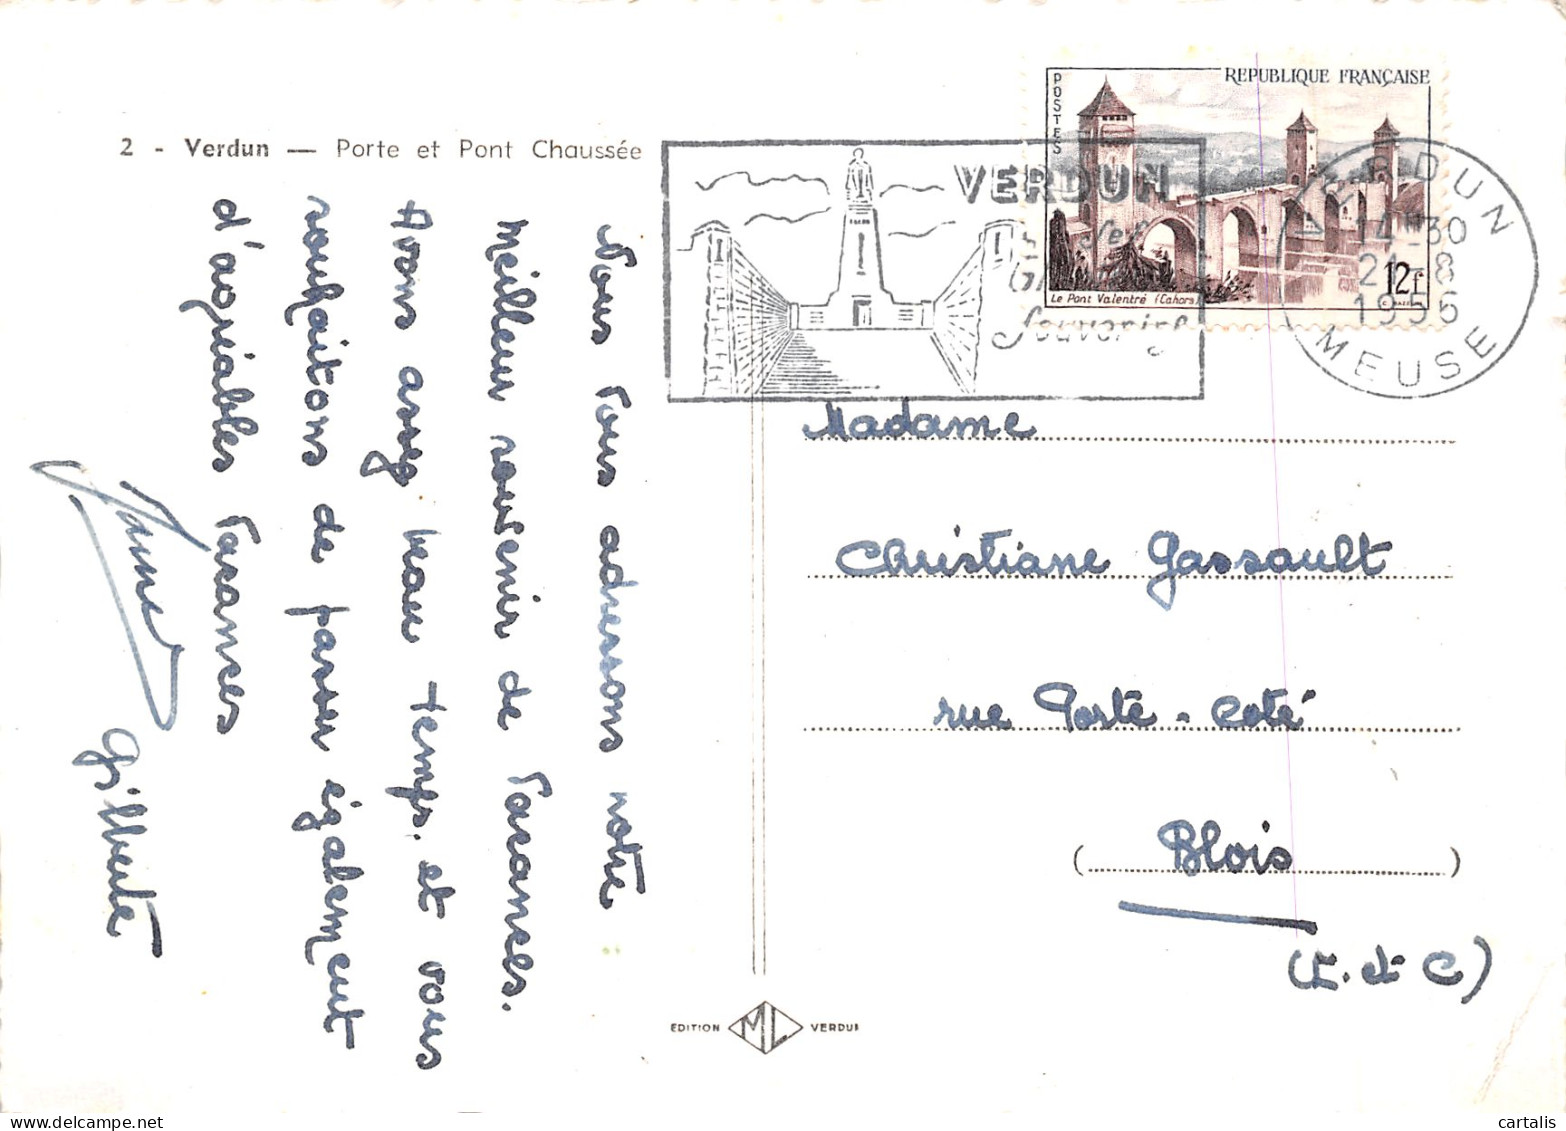 2 - Verdun — Porte et Pont Chaussée
Nous vous adressons notre
Meilleur souvenir de vacances.
Avons assez beau temps. et vous
souhaitons de passer également
d'agréables vacances
Gilberte
POSTES
REPUBLIQUE FRANÇAISE
Le Pont Valentré (Cahors)
12f
VERDUN
Souvenirs
VERDUN
14-30
21-8
1956
MEUSE
Madame
Christiane Gassault
rue Porte-Coté
(Blois)
(L-et-C)
EDITION ML VERDUN
cartalis